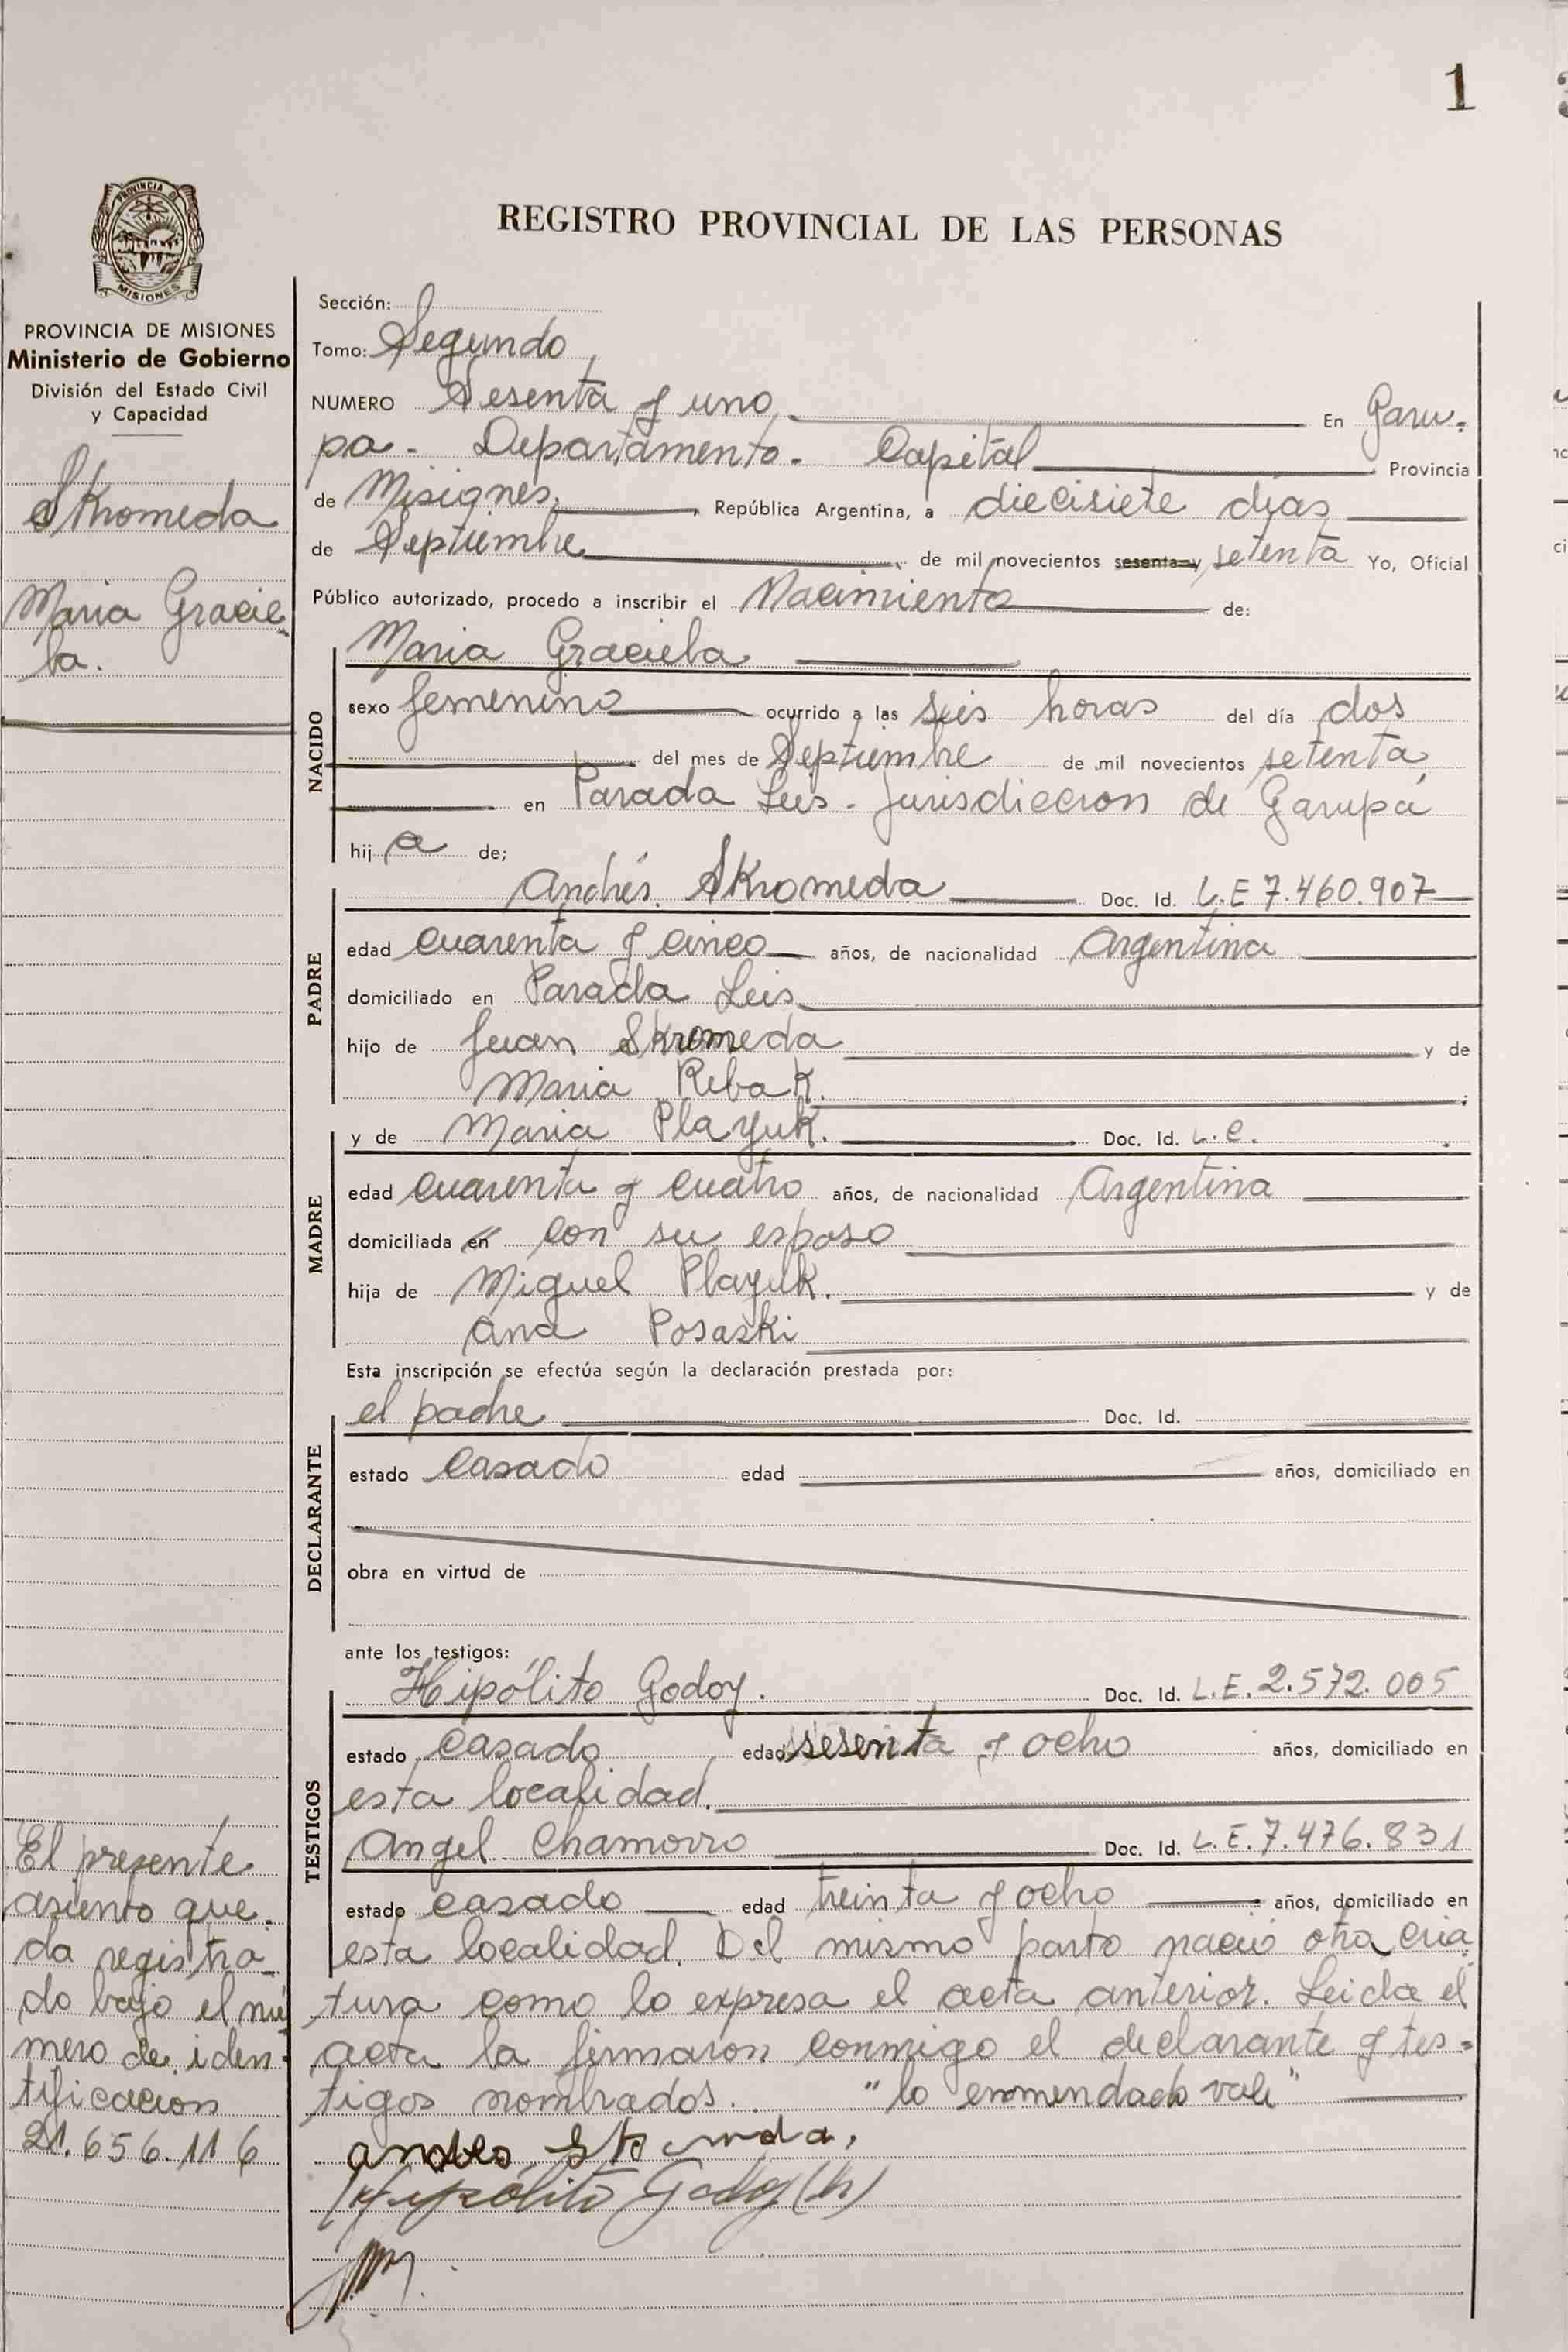 1
REGISTRO PROVINCIAL DE LAS PERSONAS
PROVINCIA DE
MISIONES
PROVINCIA DE MISIONES
Ministerio de Gobierno
División del Estado Civil
y Capacidad
Skromeda
Maria Gracie
la.
El presente
asiento que-
da registra-
do bajo el nú
mero de iden-
tificacion
21.656.116
Sección:
Tomo: Segundo
NUMERO Sesenta y uno En Garu-
pa - Departamento - Capital Provincia
de Misiones. República Argentina, a diecisiete dias
de Septiembre de mil novecientos sesenta y setenta Yo, Oficial
Público autorizado, procedo a inscribir el Nacimiento de:
NACIDO
Maria Graciela
sexo femenino ocurrido a las seis horas del día dos
del mes de Septiembre de mil novecientos setenta
en Parada Leis - Jurisdiccion de Garupá
hij a de;
PADRE
Andrés Skromeda Doc. Id. L.E 7.460.907
edad cuarenta y cinco años, de nacionalidad Argentina
domiciliado en Parada Leis
hijo de Juan Skromeda y de
Maria Rebak.
MADRE
y de Maria Playuk. Doc. Id. L.C.
edad cuarenta y cuatro años, de nacionalidad Argentina
domiciliada en con su esposo
hija de Miguel Playuk. y de
Ana Posaski
Esta inscripción se efectúa según la declaración prestada por:
DECLARANTE
el padre Doc. Id.
estado Casado edad años, domiciliado en
obra en virtud de
ante los testigos:
TESTIGOS
Hipólito Godoy. Doc. Id. L.E. 2.572.005
estado Casado edad sesenta y ocho años, domiciliado en
esta localidad.
Angel Chamorro Doc. Id. L.E. 7.476.831
estado casado edad treinta y ocho años, domiciliado en
esta localidad. Del mismo parto nació otra cria
tura como lo expresa el acta anterior. Leida el
acta la firmaron conmigo el declarante y tes-
tigos nombrados. "lo enmendado vale"
Hipólito Godoy (h)